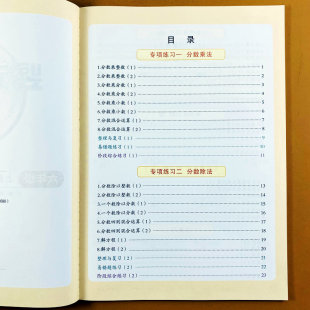 目 录
专项练习一 分数乘法
1.分数乘整数（1） 1
2.分数乘整数（2） 2
3.分数乘分数（1） 3
4.分数乘分数（2） 4
5.分数乘小数（1） 5
6.分数乘小数（2） 6
7.分数混合运算（1） 7
8.分数混合运算（2） 8
整理与复习（1） 9
易错题练习（1） 10
阶段综合练习（1） 11
专项练习二 分数除法
1.分数除以整数（1） 13
2.分数除以整数（2） 14
3.一个数除以分数（1） 15
4.一个数除以分数（2） 16
5.分数四则混合运算（1） 17
6.分数四则混合运算（2） 18
7.解方程（1） 19
8.解方程（2） 20
整理与复习（2） 21
易错题练习（2） 22
阶段综合练习（2） 23